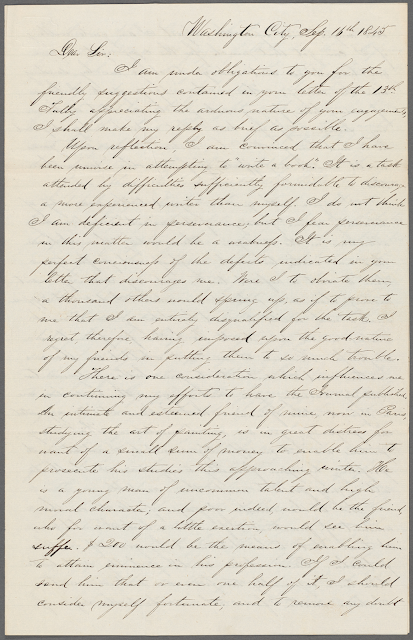 Washington City, Sep. 14th 1845
Dear Sir:
I am under obligations to you for the
friendly suggestions contained in your letter of the 13th
Fully appreciating the arduous nature of your engagements,
I shall make my reply as brief as possible.
Upon reflection, I am convinced that I have
been unwise in attempting to "write a book". It is a task
attended by difficulties sufficiently formidable to discourage
a more experienced writer than myself. I do not think
I am deficient in perseverance; but I fear perseverance
in this matter would be a weakness. It is my
perfect consciousness of the defects indicated in your
letter that discourages me. Were I to obviate them,
a thousand others would spring up, as if to prove to
me that I am entirely disqualified for the task. I
regret therefore having imposed upon the good nature
of my friends in putting them to so much trouble.
There is one consideration which influences me
in continuing my efforts to have the Journal published.
An intimate and esteemed friend of mine, now in Paris,
studying the art of painting, is in great distress for
want of a small sum of money to enable him to
prosecute his studies this approaching winter. He
is a young man of uncommon talent and high
moral character, and poor indeed would be the friend
who for want of a little exertion, would see him
suffer. $200 would be the means of enabling him
to attain eminence in his profession. If I could
send him that or even one half of it, I should
consider myself fortunate, and to remove any doubt